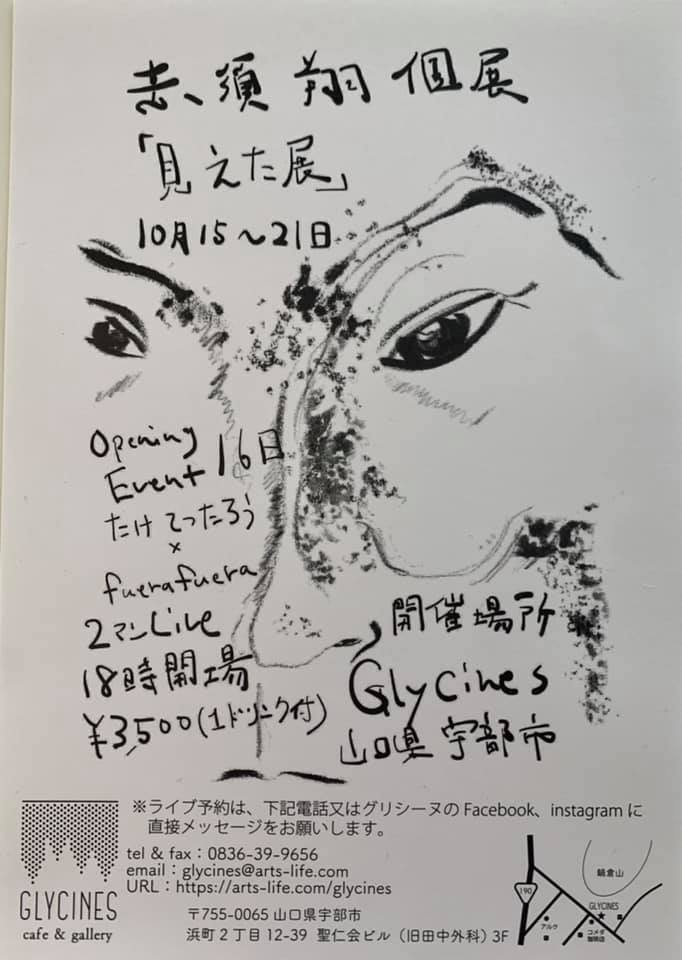 赤須 翔 個展
「見えた展」
10月15〜21日
Opening
Event 16日
たけ てつたろう
×
fuerafuera
2マンLive
18時開場
¥3,500(1ドリンク付)
開催場所
Glycines
山口県 宇部市
※ライブ予約は、下記電話又はグリシーヌの Facebook、instagram に
直接メッセージをお願いします。
tel & fax：0836-39-9656
email：glycines@arts-life.com
URL：https://arts-life.com/glycines
GLYCINES
cafe & gallery
〒755-0065 山口県宇部市
浜町2丁目12-39 聖仁会ビル（旧田中外科）3F
鍋倉山
190
GLYCINES
アルク
コメダ
珈琲店